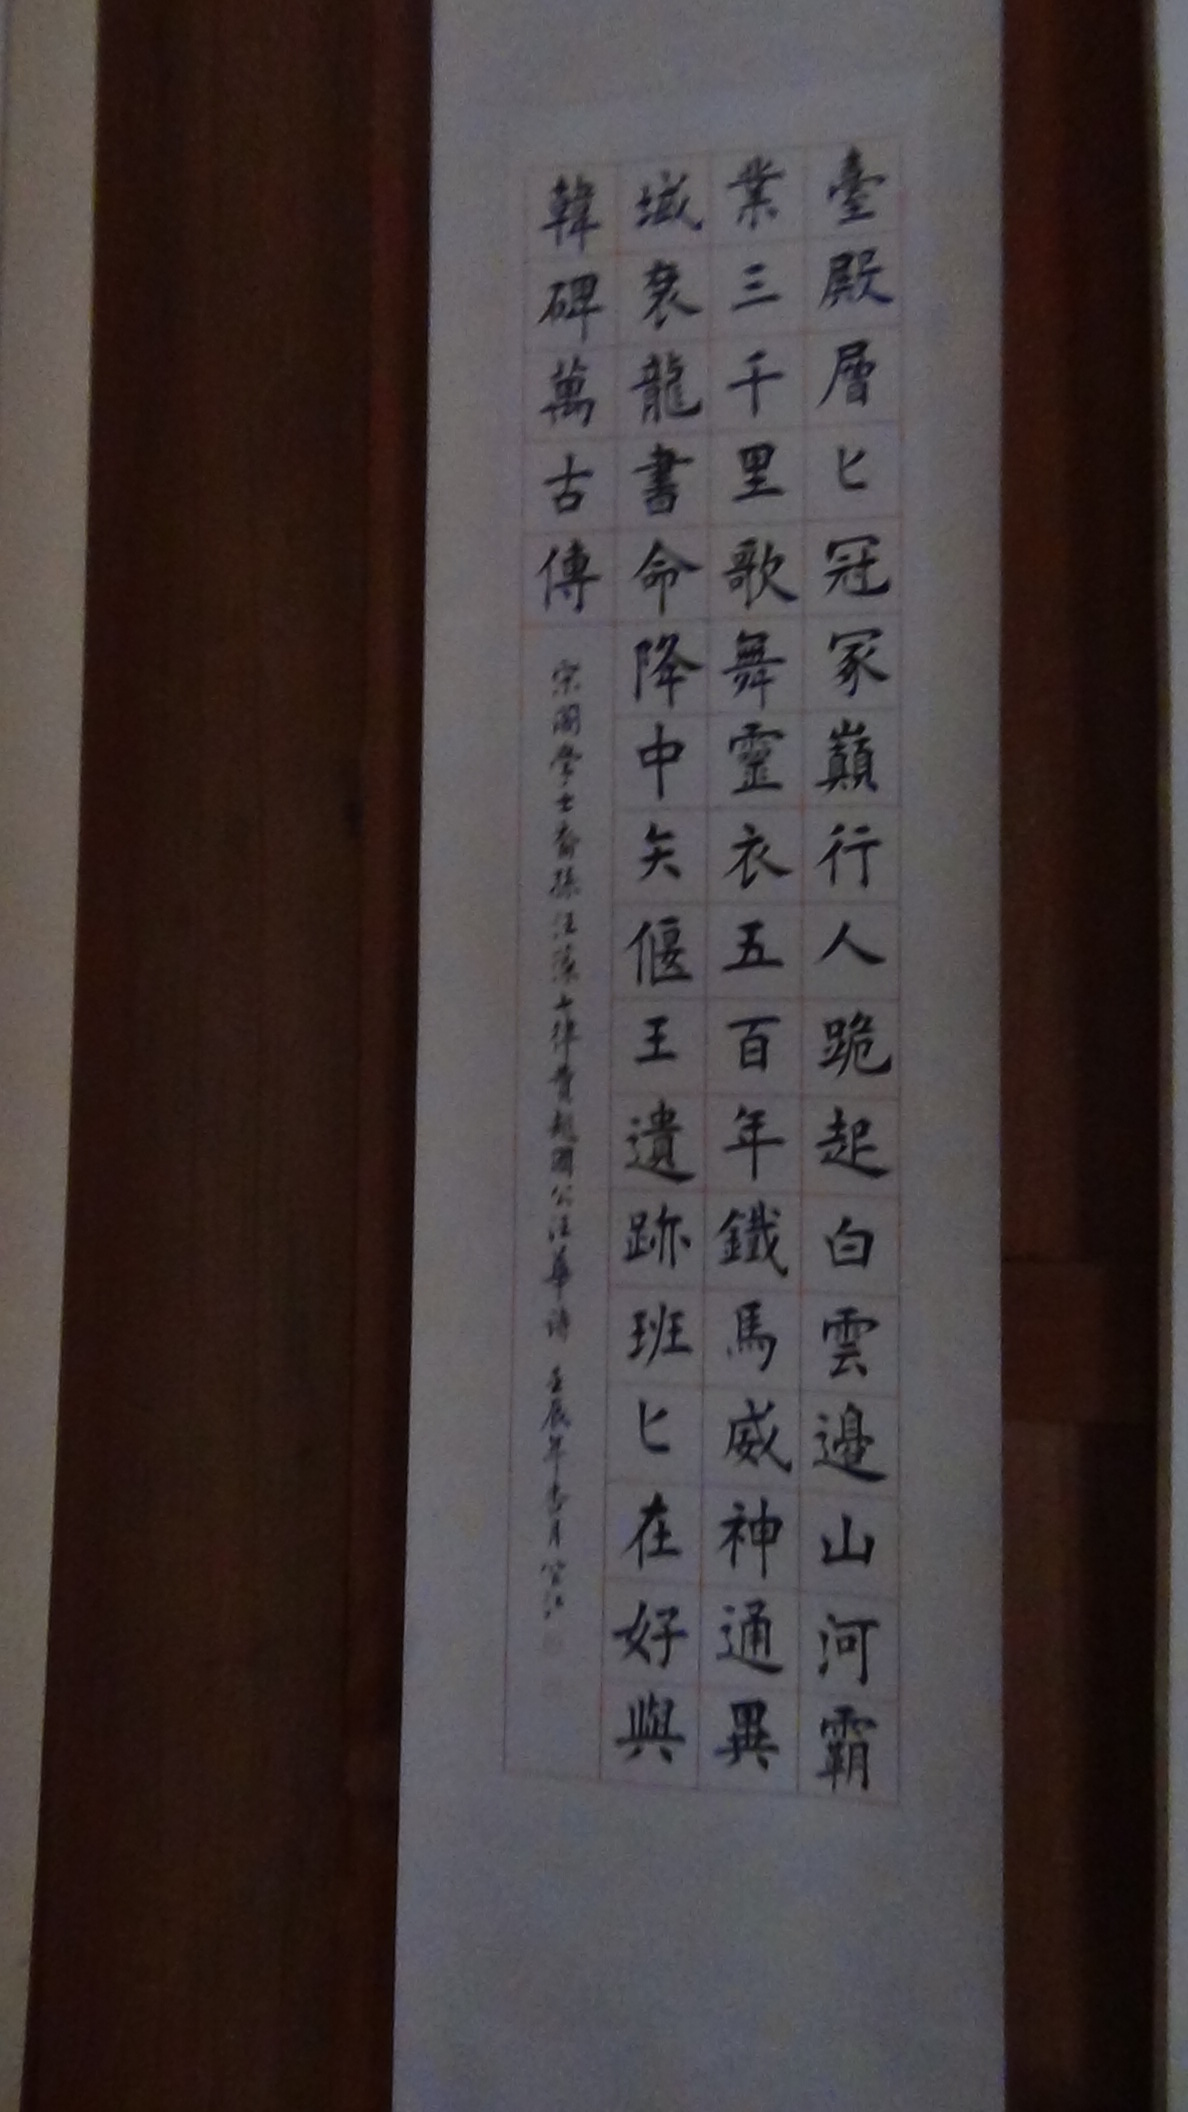 臺殿層匕冠冢巔行人跪起白雲邊山河霸
業三千里歌舞靈衣五百年鐵馬威神通異
域袞龍書命降中矢偃王遺跡班匕在好與
韓碑萬古傳
宋閣學士裔孫汪藻七律賛越國公汪華詩 壬辰年杏月